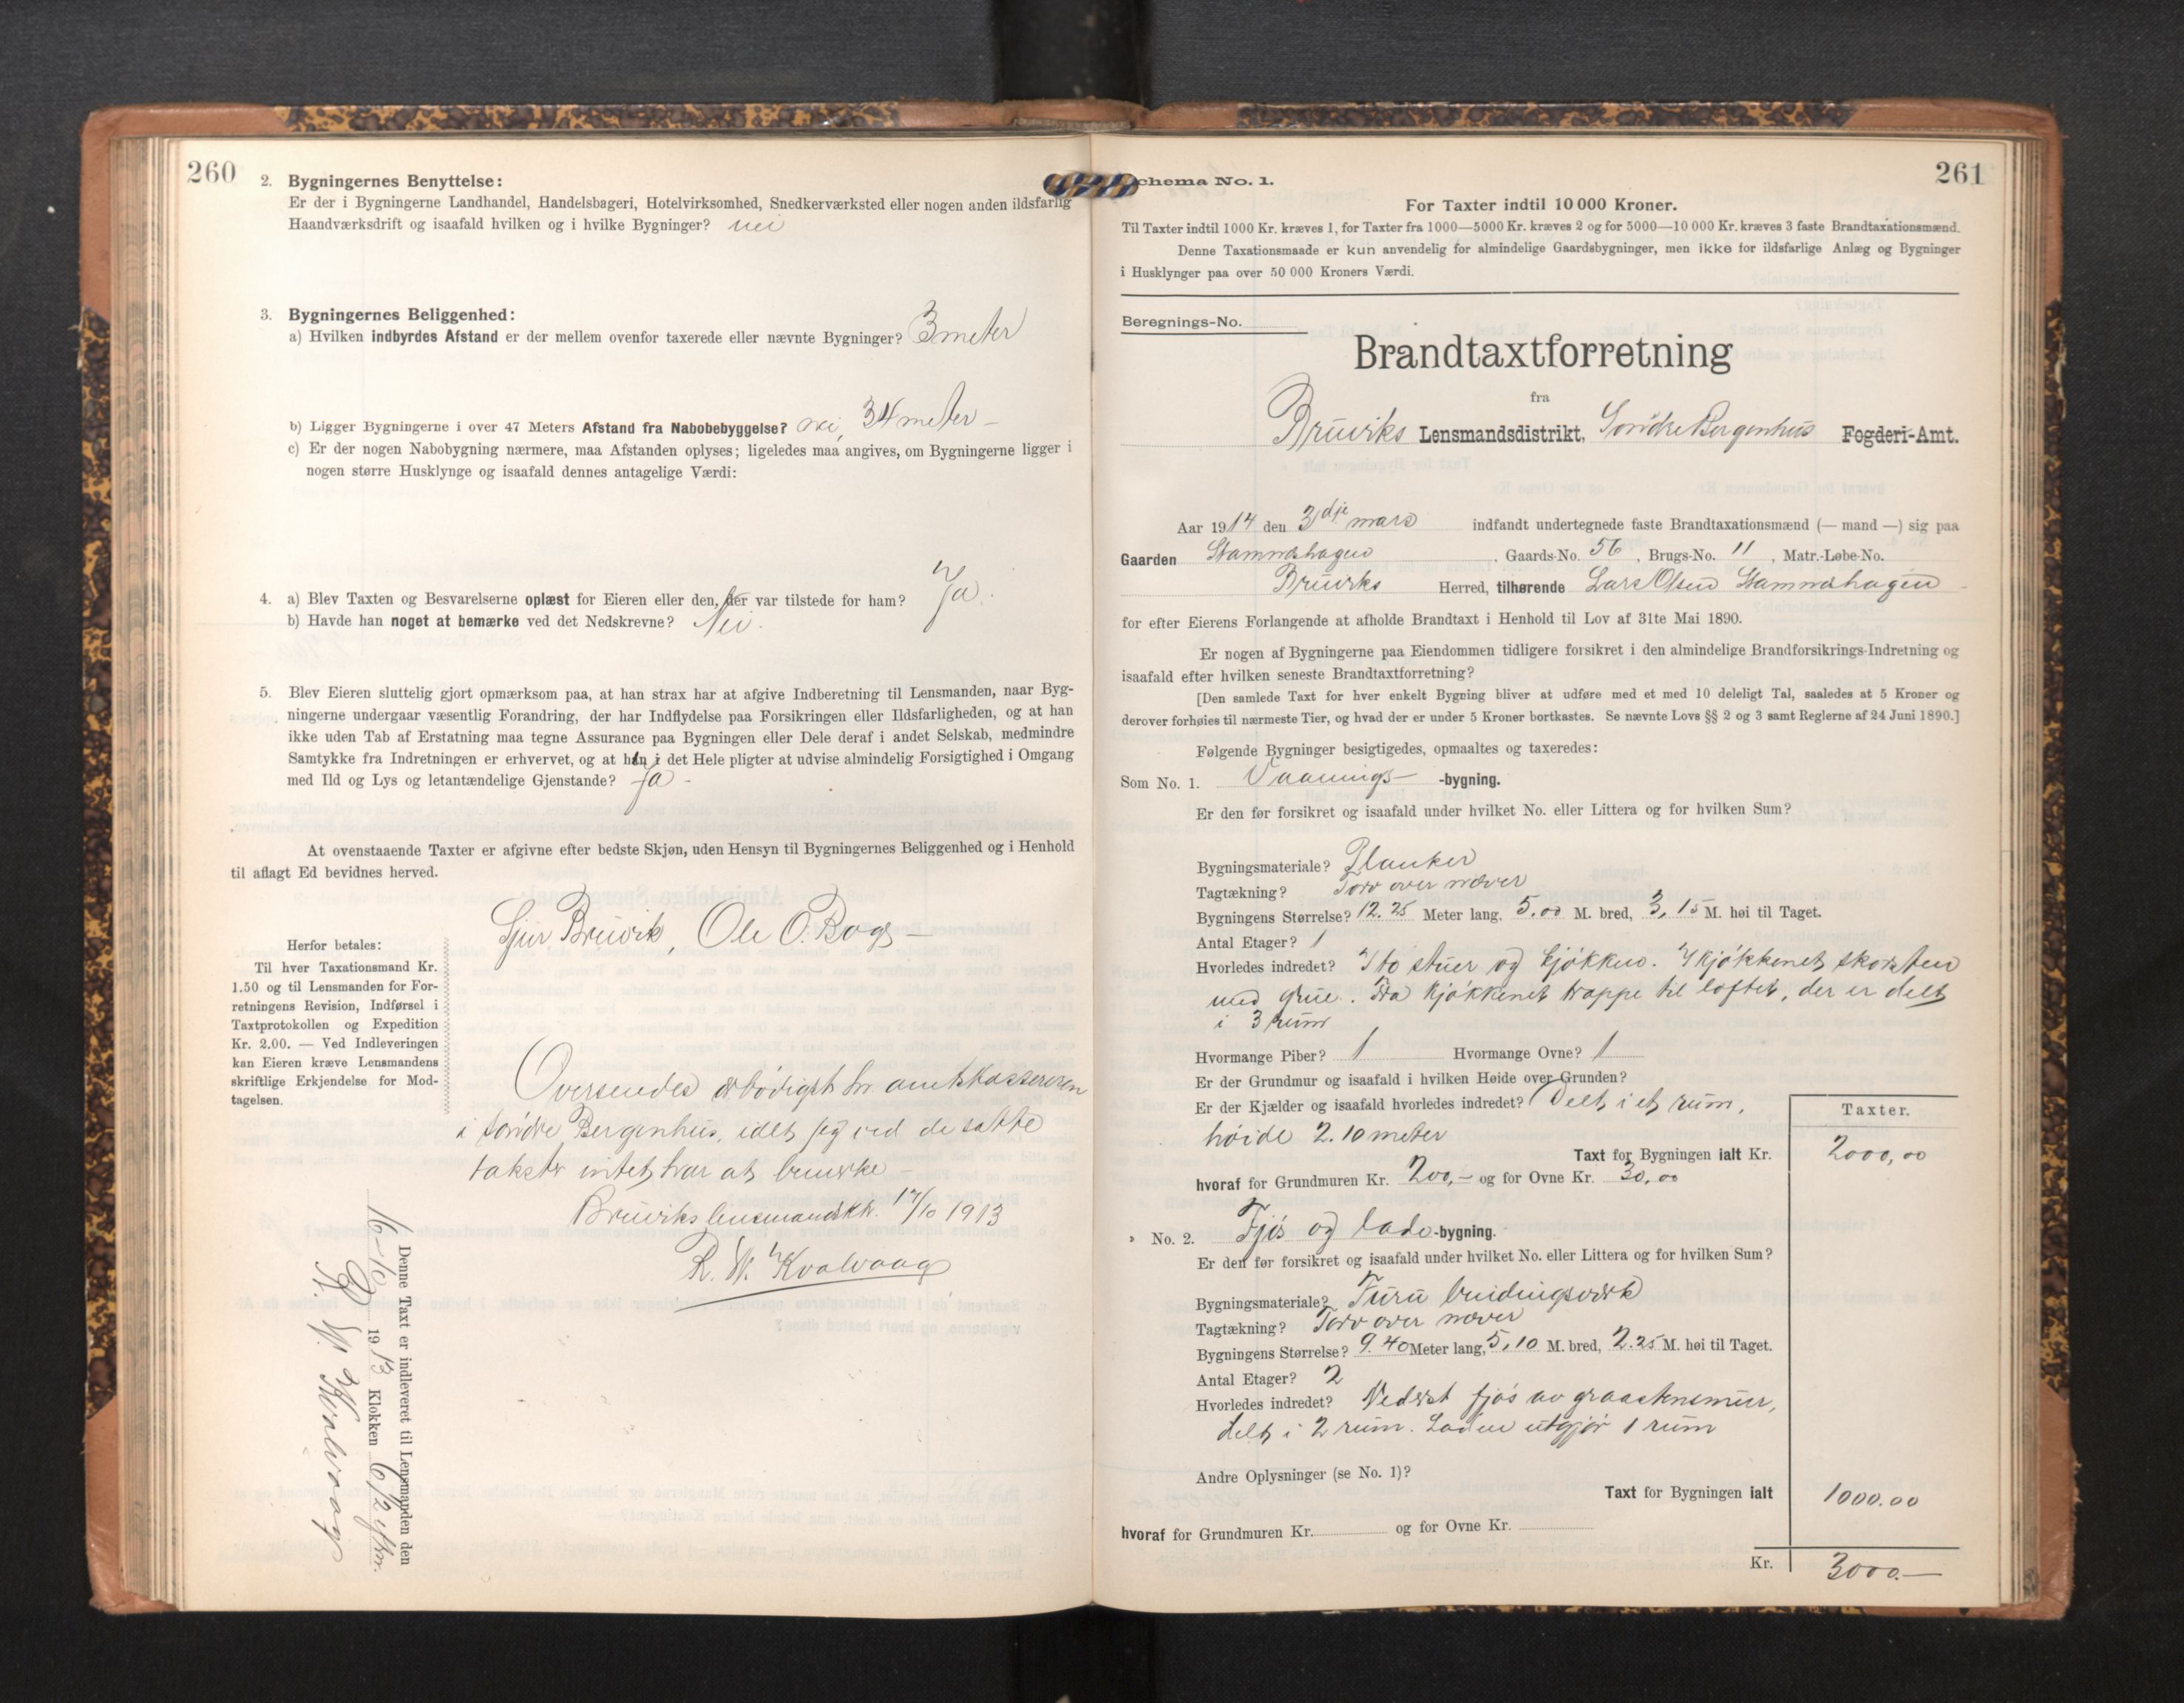 260
2. Bygningernes Benyttelse:
Er der i Bygningerne Landhandel, Handelsbageri, Hotelvirksomhed, Snedkerværksted eller nogen anden ildsfarlig
Haandværksdrift og isaafald hvilken og i hvilke Bygninger? nei
3. Bygningernes Beliggenhed:
a) Hvilken indbyrdes Afstand er der mellem ovenfor taxerede eller nævnte Bygninger? 3 meter
b) Ligger Bygningerne i over 47 Meters Afstand fra Nabobebyggelse? nei, 34 meter –
c) Er der nogen Nabobygning nærmere, maa Afstanden oplyses; ligeledes maa angives, om Bygningerne ligger i
nogen større Husklynge og isaafald dennes antagelige Værdi:
4. a) Blev Taxten og Besvarelserne oplæst for Eieren eller den, der var tilstede for ham? Ja.
b) Havde han noget at bemærke ved det Nedskrevne? Nei.
5. Blev Eieren sluttelig gjort opmærksom paa, at han strax har at afgive Indberetning til Lensmanden, naar Byg-
ningerne undergaar væsentlig Forandring, der har Indflydelse paa Forsikringen eller Ildsfarligheden, og at han
ikke uden Tab af Erstatning maa tegne Assurance paa Bygningen eller Dele deraf i andet Selskab, medmindre
Samtykke fra Indretningen er erhvervet, og at han i det Hele pligter at udvise almindelig Forsigtighed i Omgang
med Ild og Lys og letantændelige Gjenstande? Ja –
At ovenstaaende Taxter er afgivne efter bedste Skjøn, uden Hensyn til Bygningernes Beliggenhed og i Henhold
til aflagt Ed bevidnes herved.
Sjur Bruvik, Ole O. Boge –
Herfor betales:
Til hver Taxationsmand Kr.
1.50 og til Lensmanden for For-
retningens Revision, Indførsel i
Taxtprotokollen og Expedition
Kr. 2.00. — Ved Indleveringen
kan Eieren kræve Lensmandens
skriftlige Erkjendelse for Mod-
tagelsen.
Oversendes ærbødigst hr amtskassereren
i Søndre Bergenhus, idet jeg ved de satte
takster intet har at bemerke –
Bruviks lensmandskk. 17/10 1913
R. W. Kvalvaag
Denne Taxt er indleveret til Lensmanden den
16-10 1913 Klokken 6 1/2 eftm.
R. W. Kvalvaag
261
chema No. 1.
For Taxter indtil 10 000 Kroner.
Til Taxter indtil 1000 Kr. kræves 1, for Taxter fra 1000—5000 Kr. kræves 2 og for 5000—10 000 Kr. kræves 3 faste Brandtaxationsmænd.
Denne Taxationsmaade er kun anvendelig for almindelige Gaardsbygninger, men ikke for ildsfarlige Anlæg og Bygninger
i Husklynger paa over 50 000 Kroners Værdi.
Beregnings-No.
Brandtaxtforretning
fra
Bruviks Lensmandsdistrikt, Søndre Bergenhus Fogderi-Amt.
Aar 1914 den 3dje mars indfandt undertegnede faste Brandtaxationsmænd (— mand —) sig paa
Gaarden Stamneshagen, Gaards-No. 56, Brugs-No. 11, Matr.-Løbe-No.
Bruviks Herred, tilhørende Lars Olsen Stamneshagen –
for efter Eierens Forlangende at afholde Brandtaxt i Henhold til Lov af 31te Mai 1890.
Er nogen af Bygningerne paa Eiendommen tidligere forsikret i den almindelige Brandforsikrings-Indretning og
isaafald efter hvilken seneste Brandtaxtforretning?
[Den samlede Taxt for hver enkelt Bygning bliver at udføre med et med 10 deleligt Tal, saaledes at 5 Kroner og
derover forhøies til nærmeste Tier, og hvad der er under 5 Kroner bortkastes. Se nævnte Lovs §§ 2 og 3 samt Reglerne af 24 Juni 1890.]
Følgende Bygninger besigtigedes, opmaaltes og taxeredes:
Som No. 1. Vaanings- -bygning.
Er den før forsikret og isaafald under hvilket No. eller Littera og for hvilken Sum?
Bygningsmateriale? Planker
Tagtækning? Torv over næver
Bygningens Størrelse? 12.25 Meter lang, 5,00 M. bred, 3,15 M. høi til Taget.
Antal Etager? 1
Hvorledes indredet? I to stuer og kjøkken. I kjøkkenet skorsten
med grue. Fra kjøkkenet trappe til loftet, der er delt
i 3 rum
Hvormange Piber? 1 Hvormange Ovne? 1
Er der Grundmur og isaafald i hvilken Høide over Grunden?
Er der Kjælder og isaafald hvorledes indredet? Delt i et rum,
høide 2.10 meter
Taxter.
Taxt for Bygningen ialt Kr. 2000,00
hvoraf for Grundmuren Kr. 200,– og for Ovne Kr. 30,00
No. 2. Fjøs og lade-bygning.
Er den før forsikret og isaafald under hvilket No. eller Littera og for hvilken Sum?
Bygningsmateriale? Furu bindingsverk
Tagtækning? Torv over næver
Bygningens Størrelse? 9.40 Meter lang, 5,10 M. bred, 2.25 M. høi til Taget.
Antal Etager? 2
Hvorledes indredet? Nederst fjøs av graastensmur,
delt i 2 rum. Laden utgjør 1 rum
Andre Oplysninger (se No. 1)?
Taxt for Bygningen ialt 1000.00
hvoraf for Grundmuren Kr. og for Ovne Kr.
Kr. 3000.–